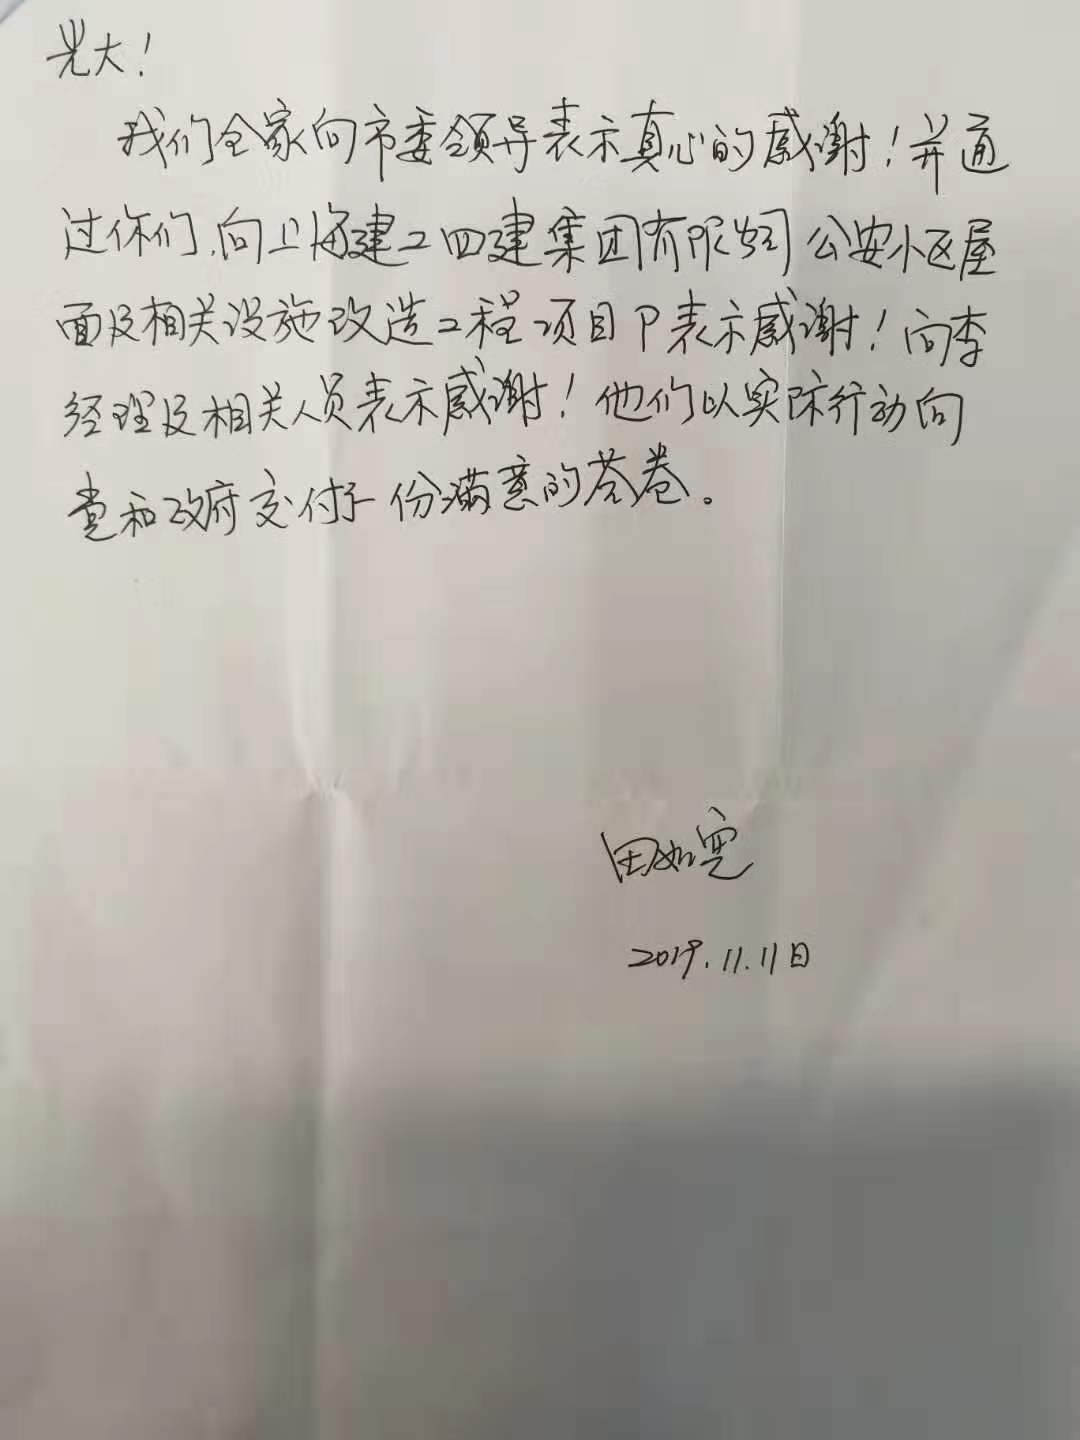 光大！
我们全家向市委领导表示真心的感谢！并通
过你们，向上海建工四建集团有限公司公安小区屋
面及相关设施改造工程项目P表示感谢！向李
经理及相关人员表示感谢！他们以实际行动向
党和政府交付了一份满意的答卷。
田如
2019.11.11日